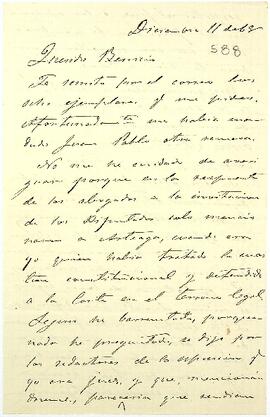 Diciembre 11 de 62
588
Querido Benicio
Te remito por el correo los
ocho ejemplares q' me pides.
Afortunadamente me habia man
dado Juan Pablo otra remesa.
No me he cuidado de averi
guar porque en la respuesta
de los abogados a la invitacion
de los Diputados solo mencio
naron a Arteaga, cuando era
yo quien habia tratado la cues
tion constitucional y defendido
a la Corte en el terreno legal.
Segun he barruntado, porque
nada he preguntado, se dijo por
los redactores de la
yo era Juez, y que, mencionán
dome, pareceria que